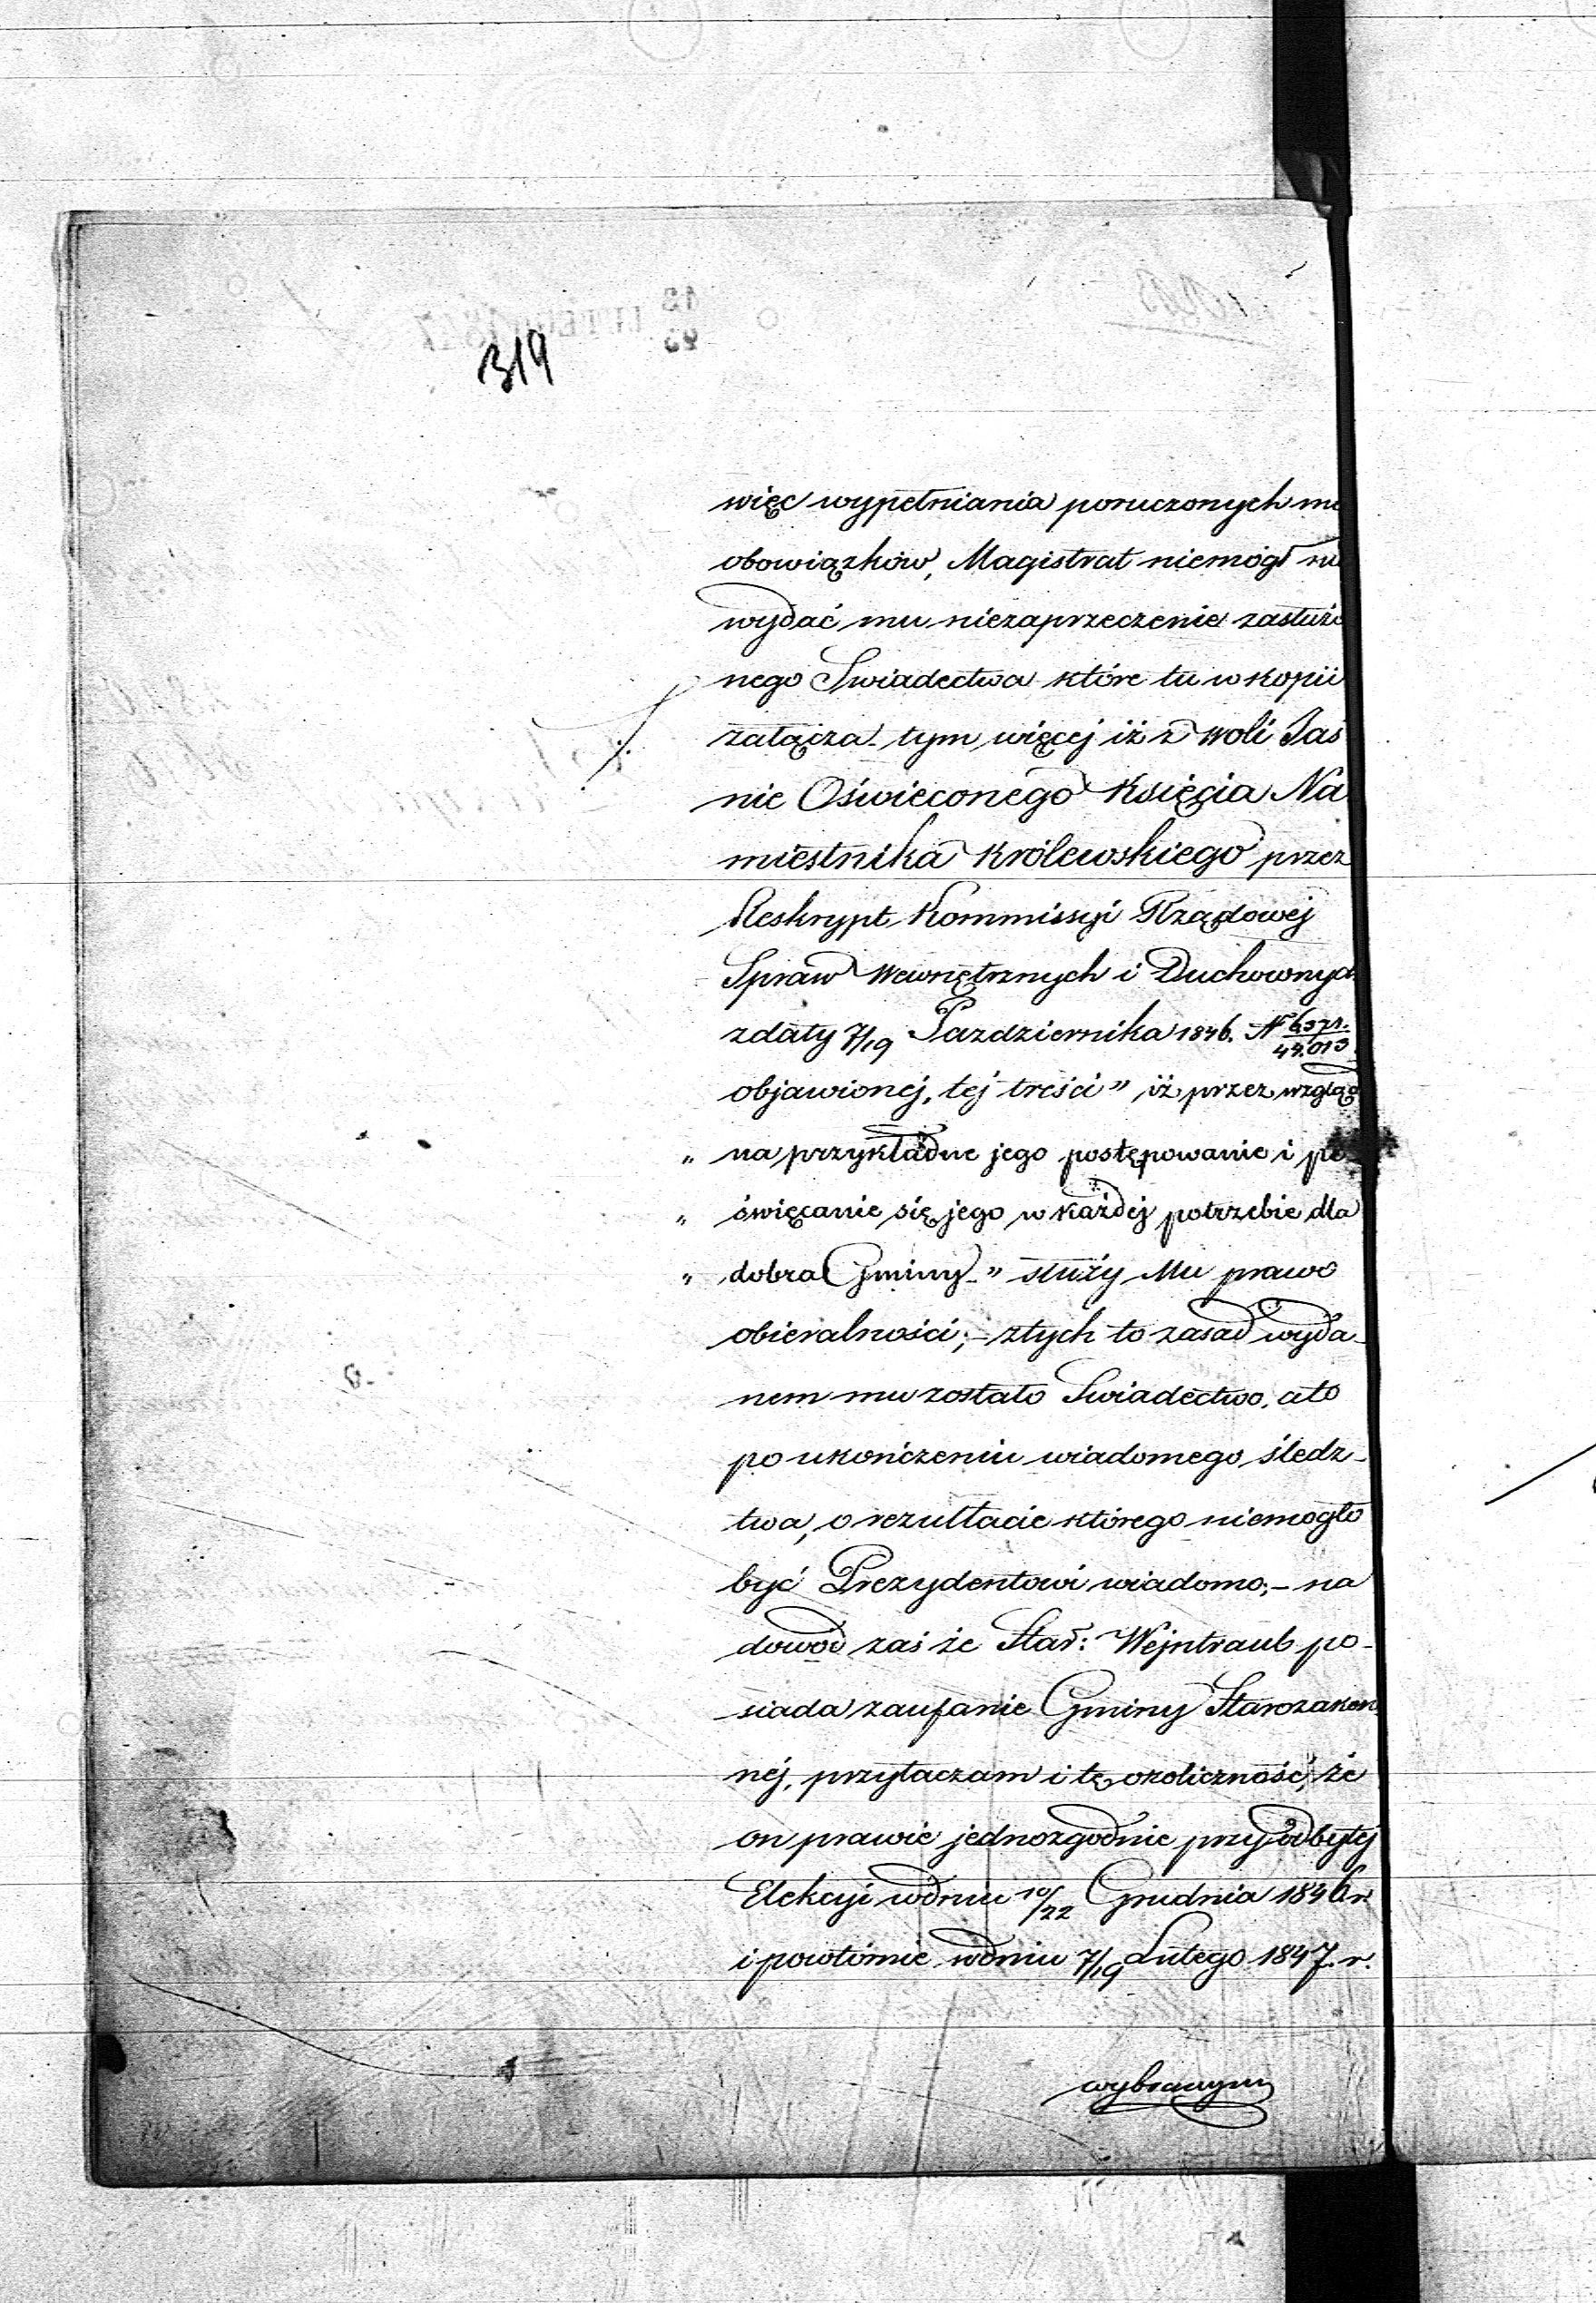 319
więc wypełniania poruczonych mu
obowiązków, Magistrat niemógł nie
wydać mu niezaprzeczenie zasłużo
nego Swiadectwa które tu w kopii
załącza tym więcej iż z woli Jaś
nie Oświeconego Księcia Na
miestnika Królewskiego przez
Reskrypt Kommissyi Rządowej
Spraw Wewnętrznych i Duchownych
zdaty 7/19 Pazdziernika 1846. N
objawionej, tej treści" iż przez wzgląd
" na przykładne jego postępowanie i po
" święcanie się jego w każdej potrzebie dla
" dobra Gminy" służy Mu prawo
obieralności; – ztych to zasad wyda-
nem mu zostało Swiadectwo, ato
po ukończeniu wiadomego śledz-
twa, o rezultacie którego niemogło
być Prezydentowi wiadomo; – na
dowód zaś że Star: Wejntraub po-
siada zaufanie Gminy Starozakon
néj, przytaczam i tę okoliczność, że
on prawie jednozgodnie przy odbytej
Elekcyi wdniu 10/22 Grudnia 1846 r.
i powtórnie wdniu 7/19 Lutego 1847. r.
wybranym